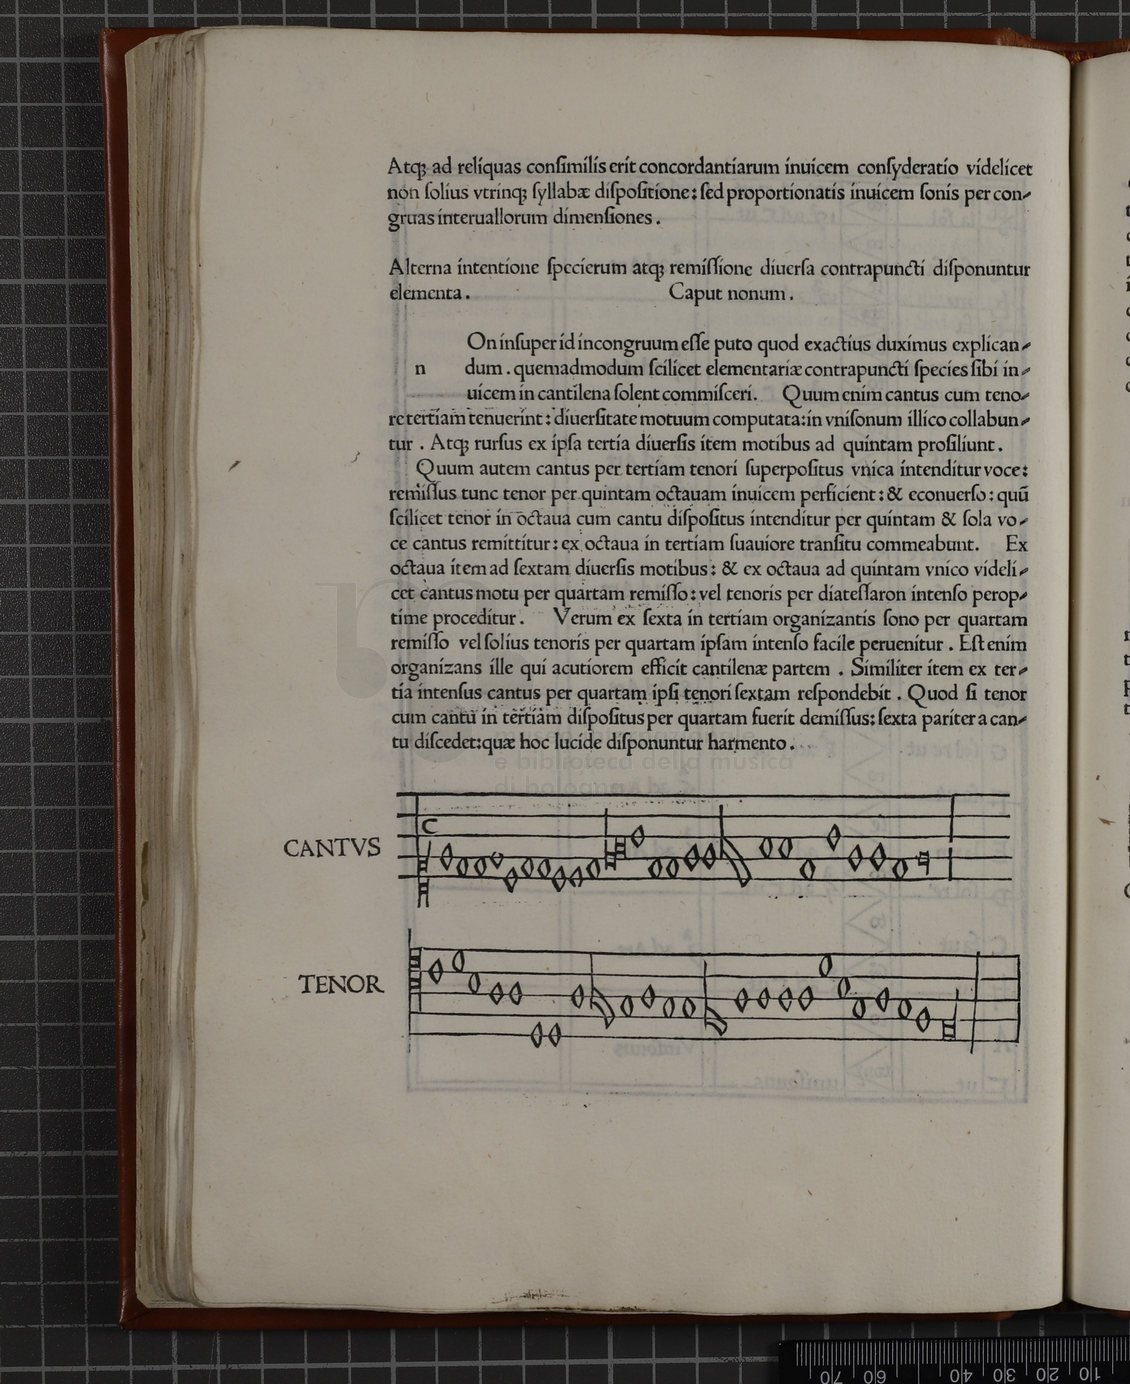 Atqꝫ ad reliquas conſimilis erit concordantiarum inuicem conſyderatio videlicet
non ſolius vtrinqꝫ ſyllabæ diſpoſitione: ſed proportionatis inuicem ſonis per con-
gruas interuallorum dimenſiones.
Alterna intentione ſpecierum atqꝫ remiſſione diuerſa contrapuncti diſponuntur
elementa. Caput nonum.
On inſuper id incongruum eſſe puto quod exactius duximus explican-
n dum. quemadmodum ſcilicet elementariæ contrapuncti ſpecies ſibi in-
uicem in cantilena ſolent commiſceri. Quum enim cantus cum teno-
re tertiam tenuerint: diuerſitate motuum computata: in vniſonum illico collabun-
tur. Atqꝫ rurſus ex ipſa tertia diuerſis item motibus ad quintam proſiliunt.
Quum autem cantus per tertiam tenori ſuperpoſitus vnica intenditur voce:
remiſſus tunc tenor per quintam octauam inuicem perficient: & econuerſo: quū
ſcilicet tenor in octaua cum cantu diſpoſitus intenditur per quintam & ſola vo-
ce cantus remittitur: ex octaua in tertiam ſuauiore tranſitu commeabunt. Ex
octaua item ad ſextam diuerſis motibus: & ex octaua ad quintam vnico videli-
cet cantus motu per quartam remiſſo: vel tenoris per diateſſaron intenſo perop-
time proceditur. Verum ex ſexta in tertiam organizantis ſono per quartam
remiſſo vel ſolius tenoris per quartam ipſam intenſo facile peruenitur. Eſt enim
organizans ille qui acutiorem efficit cantilenæ partem. Similiter item ex ter-
tia intenſus cantus per quartam ipſi tenori ſextam reſpondebit. Quod ſi tenor
cum cantu in tertiam diſpoſitus per quartam fuerit demiſſus: ſexta pariter a can-
tu diſcedet: quæ hoc lucide diſponuntur harmento.
e biblioteca della musica
di bologna
CANTVS
TENOR
70 60 40 30 20 10